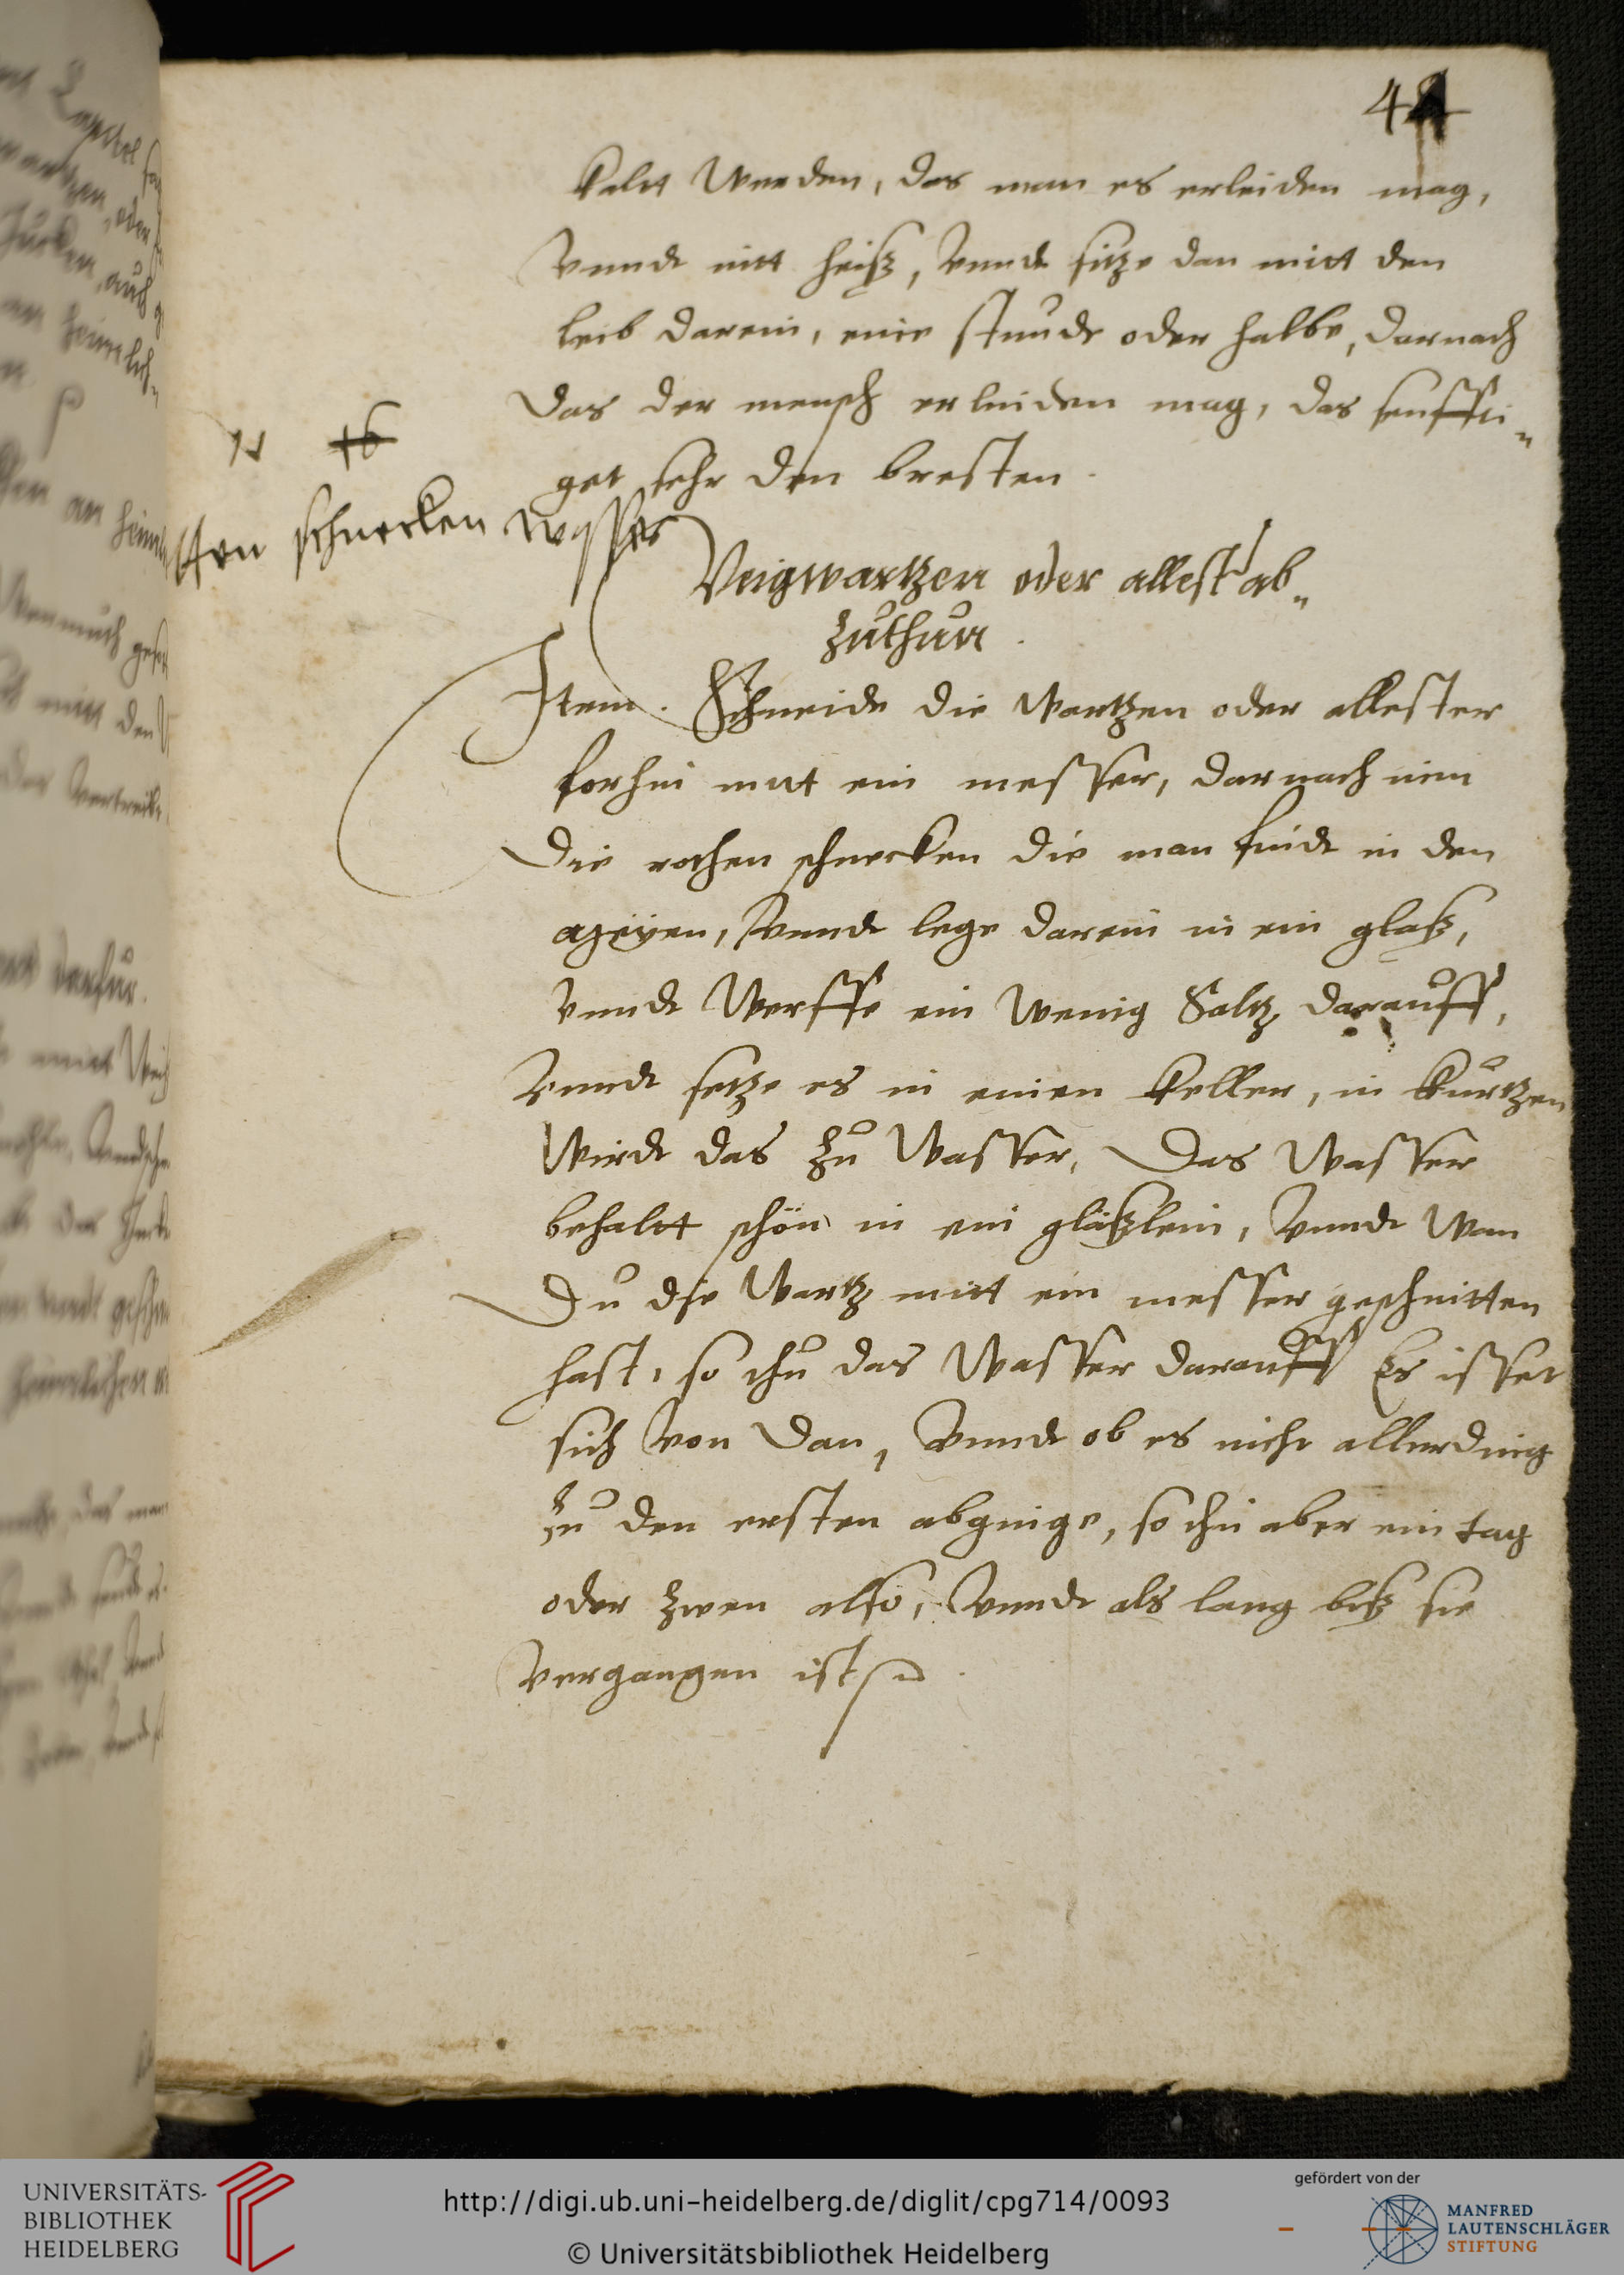 kaltt Werden, das man es erleiden mag,
Vnndt nitt heiß, Vnndt sitze dan mitt den
leib darein, eine stunde oder halbe, darnach
Das der mensch erleiden mag, das senffti„
get sehr den bresten.
16
Von schnecken wasser
Veigwartzen oder allest ab„
zuthun.
Item. Schneide die Wartzen oder allester
forhin mitt ein messer, darnach nim
Die rothen schnecken die man findt in den
Vnndt lege darein in ein glaß,
Vnndt Werffe ein Wenig Saltz darauff,
Vnndt setze es in einen Keller, in Kurtzen
Wirdt das zu Wasser, Das Wasser
behaltt schön in ein gläßlein, Vnndt Wan
Du die Wartz mitt ein messer geschnitten
hast, so thu das Wasser darauff Es isset
sich Von Dan, Vnndt ob es nicht allerding
zu den ersten abginge, so thu aber ein tag
oder zwen also, Vnndt als lang biß sie
Vergangen ist
UNIVERSITÄTS-
BIBLIOTHEK
HEIDELBERG
http://digi.ub.uni-heidelberg.de/diglit/cpg714/0093
© Universitätsbibliothek Heidelberg
gefördert von der
MANFRED
LAUTENSCHLÄGER
STIFTUNG